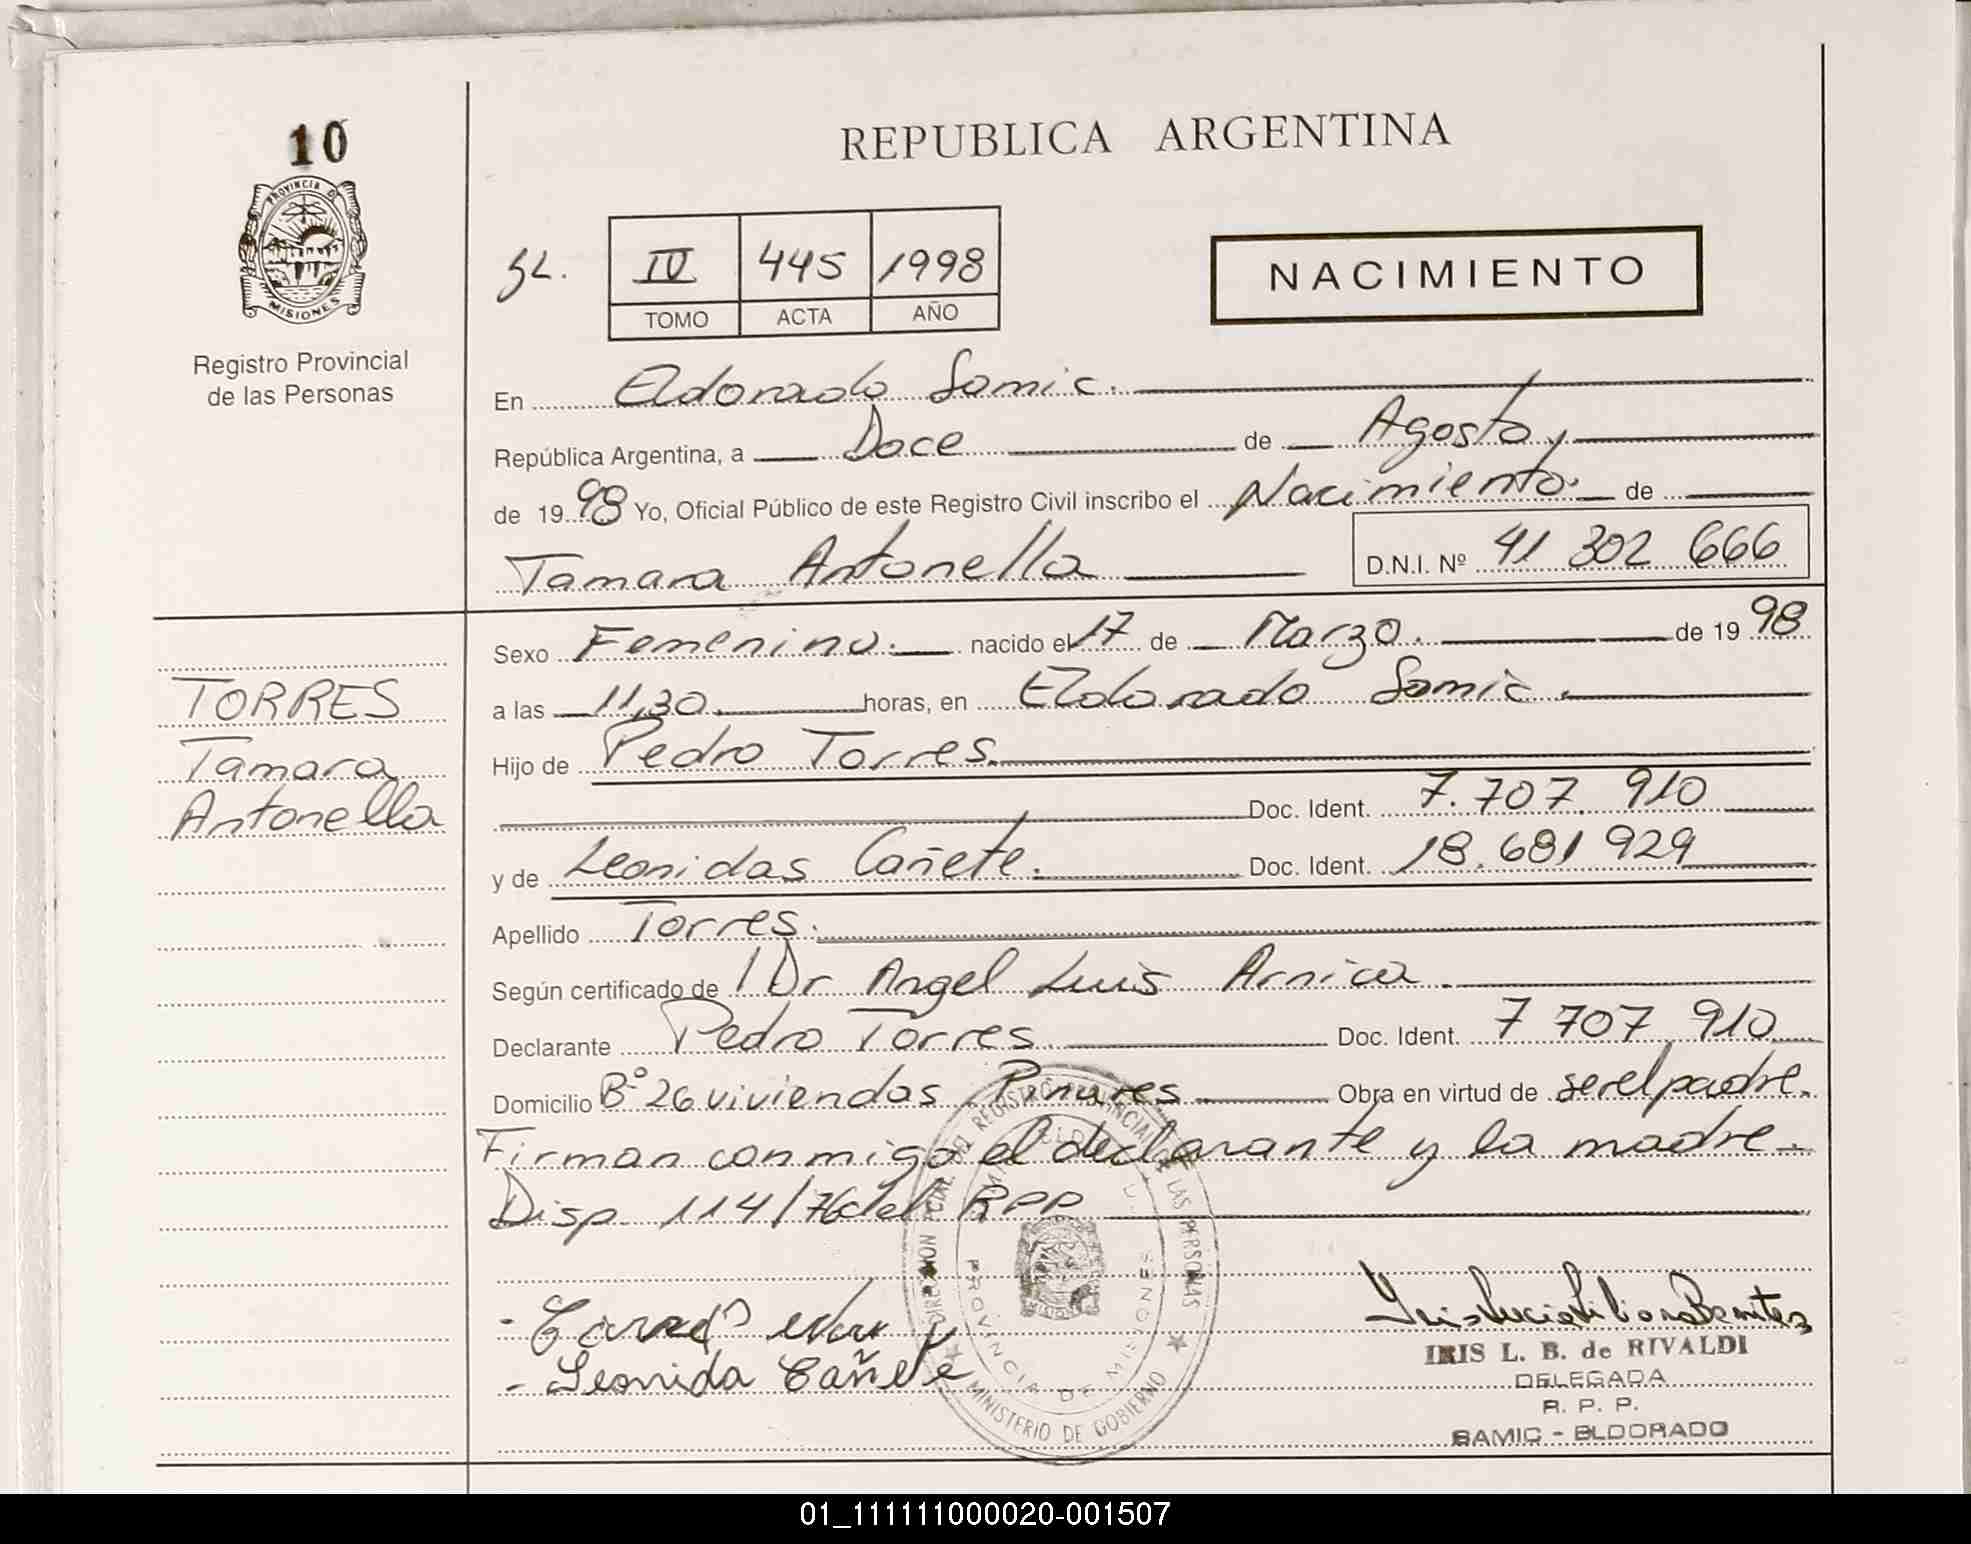 10
PROVINCIA DE
MISIONES
Registro Provincial
de las Personas
REPUBLICA ARGENTINA
IV 445 1998
TOMO ACTA AÑO
NACIMIENTO
En Eldorado Samic.
República Argentina, a Doce de Agosto,
de 1998 Yo, Oficial Público de este Registro Civil inscribo el Nacimiento. de
Tamara Antonella D.N.I. Nº 41 302 666
Sexo Femenino. nacido el 17 de Marzo. de 1998
a las 11,30 horas, en Eldorado Samic.
Hijo de Pedro Torres.
Doc. Ident. 7.707.910
y de Leonidas Cañete. Doc. Ident. 18.681 929
Apellido Torres.
Según certificado de Dr Angel Luis Arnica.
Declarante Pedro Torres. Doc. Ident. 7 707 910
Domicilio Bº 26 viviendas Pinares Obra en virtud de ser el padre.
Firman conmigo el declarante y la madre.
Disp 114/76 del RPP
TORRES
Tamara
Antonella
- Leonida Cañete
DIRECCION DEL REGISTRO PROVINCIAL DE LAS PERSONAS
PROVINCIA DE MISIONES
MINISTERIO DE GOBIERNO
IRIS L. B. de RIVALDI
DELEGADA
R. P. P.
SAMIC - ELDORADO
01_111111000020-001507